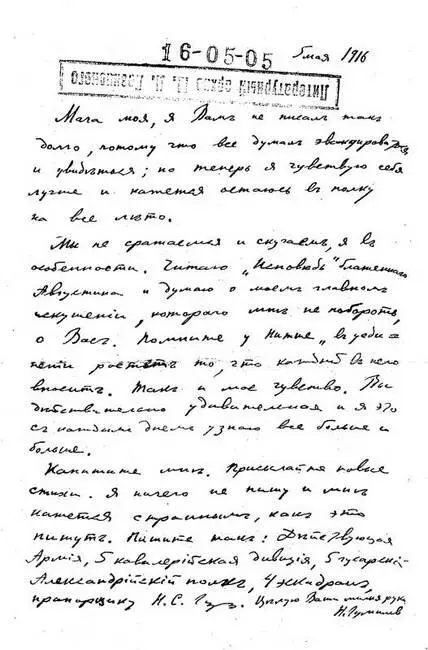 16-05-05
5 мая 1916
Литературный архив
Мага моя, я Вамъ не писалъ такъ
долго, потому что все думалъ эвакуироваться
и увидѣться; но теперь я чувствую себя
лучше и кажется остаюсь въ полку
на все лѣто.
Мы не сражаемся и скучаемъ, я въ
особенности. Читаю „Исповѣдь" блаженнаго
Августина и думаю о моемъ главномъ
искушеніи, котораго мнѣ не побороть,
о Васъ. Помните у Нитше „въ уеди-
неніи ростетъ то, что каждый въ него
вноситъ. Такъ и мое чувство. Вы
дѣйствительно удивительная и я это
съ каждымъ днемъ узнаю все больше и
больше.
Напишите мнѣ. Присылайте новые
стихи. Я ничего не пишу и мнѣ
кажется страннымъ, какъ это
пишутъ. Пишите такъ: Дѣйствующая
Армія, 5 кавалерійская дивизія, 5 гусарскій
Александрійскій полкъ, 4 эскадронъ,
прапорщику Н. С. Гум. Цѣлую Ваши милыя руки
Н. Гумилевъ